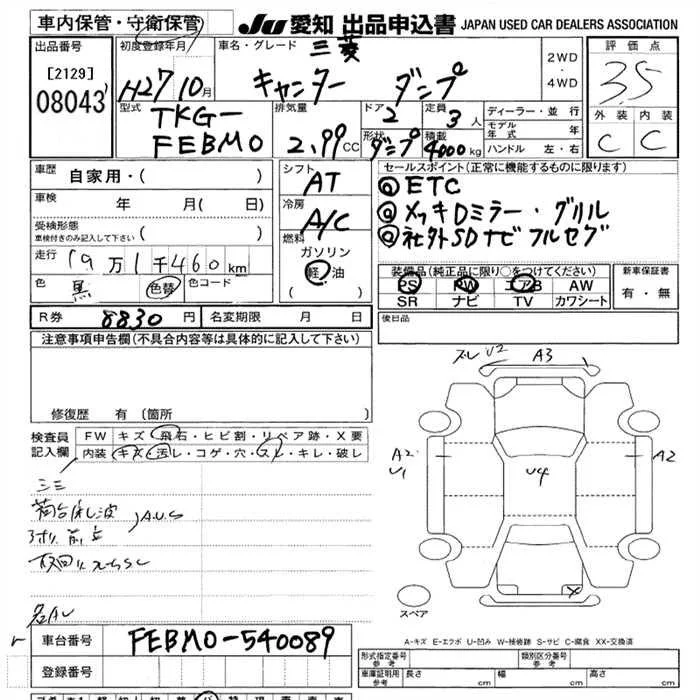 車内保管・守衛保管
JU 愛知 出品申込書 JAPAN USED CAR DEALERS ASSOCIATION
出品番号
[2129]
08043
初度登録年月
H27 10月
車名・グレード
三菱
キャンター ダンプ
2WD
・
4WD
評価点
3.5
外装 内装
C C
型式
TKG-
FEBM0
排気量
2.99 CC
ドア
2
定員
3 人
形状
ダンプ
積載
4000 kg
ディーラー・並行
モデル年式 年
ハンドル 左・右
車歴
自家用・( )
車検
年 月( 日)
受検形態
車検付きのみ記入して下さい ( )
走行
19万1千460km
色
黒
色替
色コード
シフト
AT
冷房
A/C
燃料
ガソリン
軽油
( )
セールスポイント(正常に機能するものに限ります)
◎ETC
◎メッキDミラー・グリル
◎社外SDナビ フルセグ
装備品(純正品に限り○をつけてください)
PS PW エアB AW
SR ナビ TV カワシート
新車保証書
有・無
R券 8830円
名変期限 月 日
後日品
注意事項申告欄(不具合内容等は具体的に記入して下さい)
修復歴 有(箇所
検査員記入欄
FW キズ・飛石・ヒビ割・リペア跡・X要
内装 キズ・汚レ・コゲ・穴・スレ・キレ・破レ
ズレ U2 A3
A2
U1
U4
A2
X
スペア
A-キズ E-エクボ U-凹み W-補修跡 S-サビ C-腐食 XX-交換済
車台番号 FEBM0-540089
登録番号
形式指定番号 参考
類別区分番号 参考
車庫証明用 参考 長さ cm 幅 cm 高さ cm